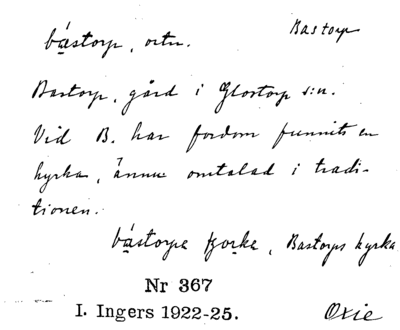 bástorp, ortn. Bastorp
Bastorp, gård i Glostorp s:n.
Vid B. har fordom funnits en
kyrka, ännu omtalad i tradi-
tionen.
bástorps kyrka, Bastorps kyrka
Nr 367
I. Ingers 1922-25. Oxie